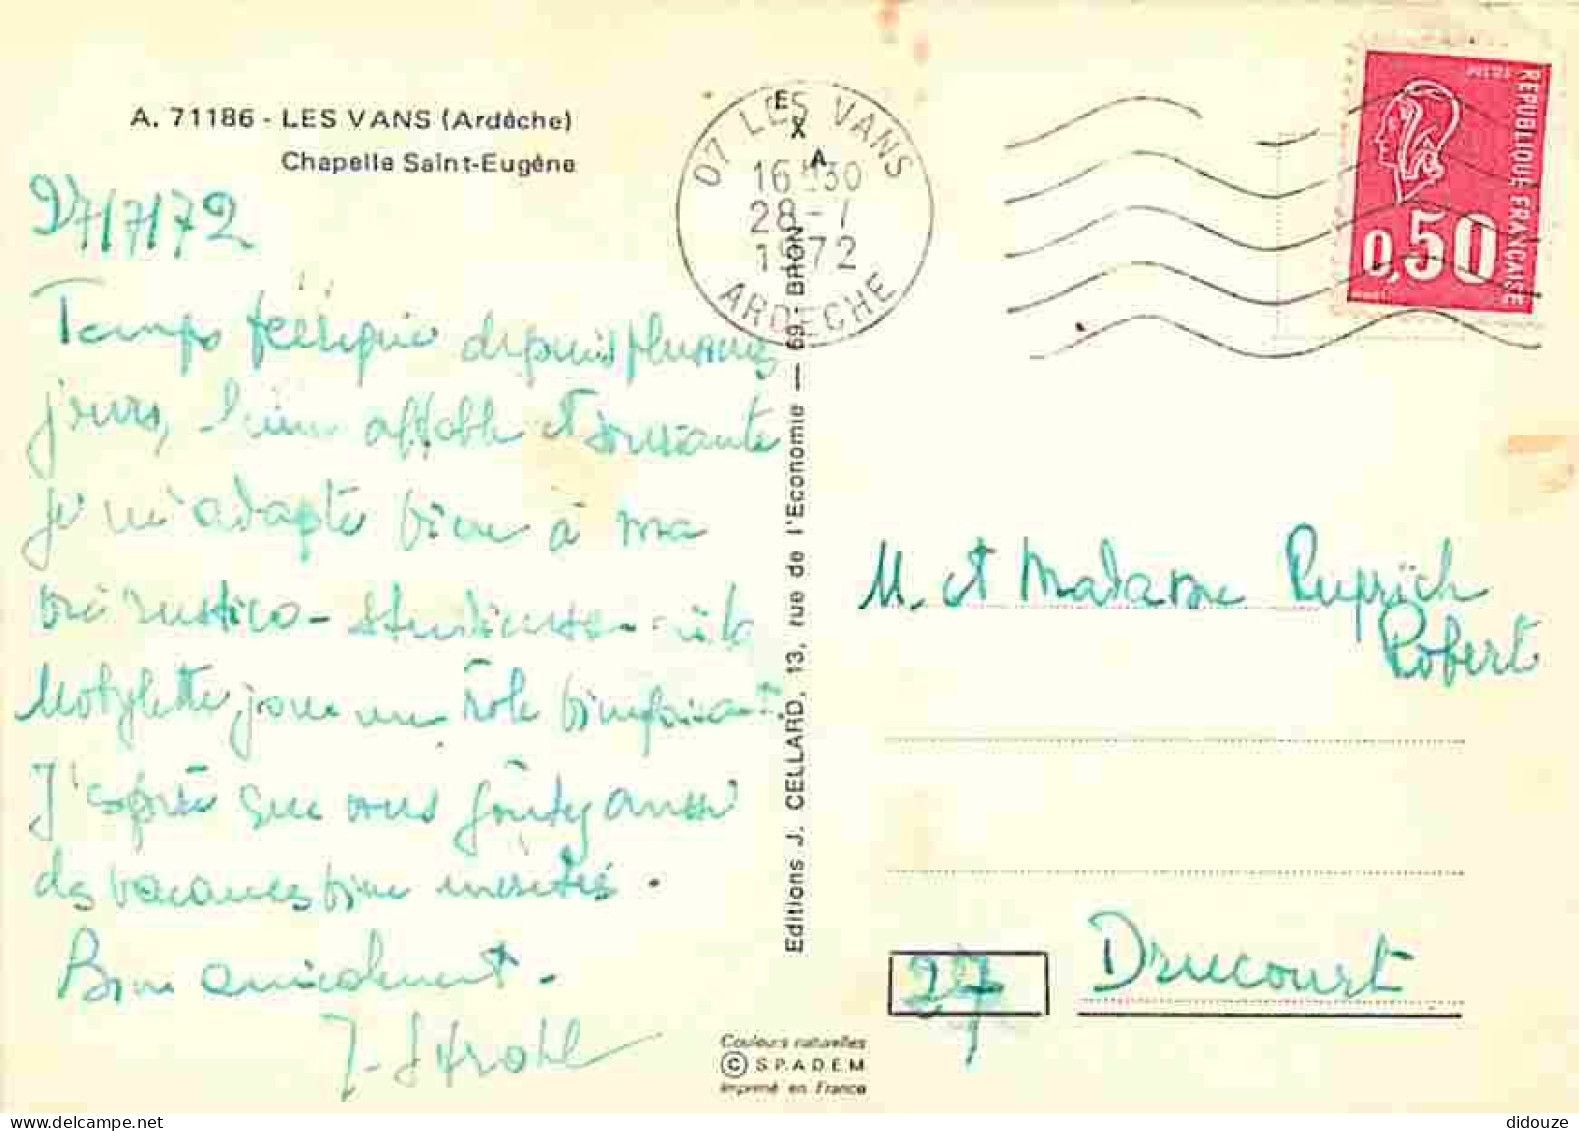 A. 71186 - LES VANS (Ardèche)
Chapelle Saint-Eugène
27/7/72
Temps féérique depuis plusieurs
jours, bien affable et souriante
je m'adapte bien à ma
vie rustico - estudiantine - la
Mobylette joue un rôle bimportant
J'espère que vous goûtez aussi
des vacances bien méritées.
Bien amicalement -
J. Strohl
Editions J. CELLARD, 13, rue de l'Economie — 69 - BRON
EXA
07 LES VANS
16 H30
28 - 7
1972
ARDECHE
REPUBLIQUE FRANÇAISE
0,50
M. et Madame Ruprich
Robert
27 Drucourt
Couleurs naturelles
© S.P.A.D.E.M
Imprimé en France
didouze